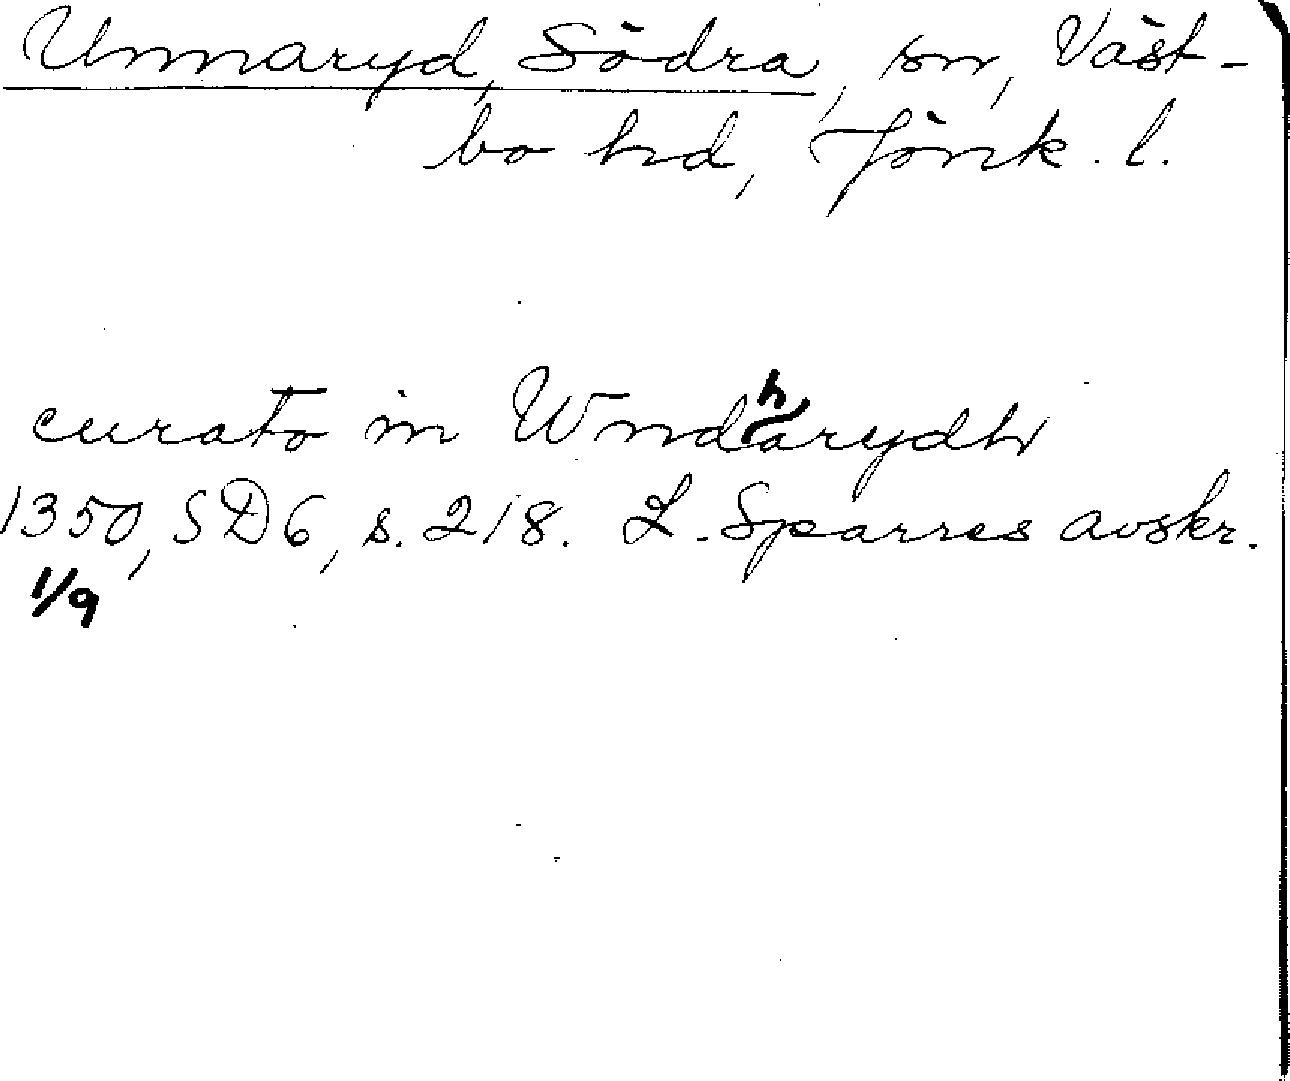 Unnaryd, Södra, sn, Väst-
bo hd, Jönk. l.
curato in Wndharydh
1350, SD6, s. 218. L. Sparres avskr.
1/9